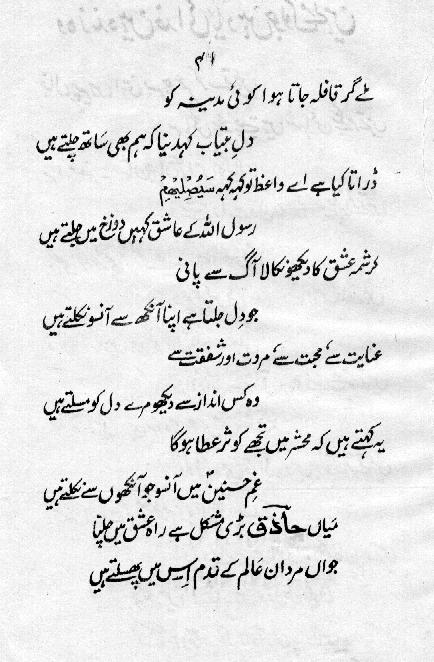 ۴۱
ملے گر قافلہ جاتا ہوا کوئی مدینہ کو
دلِ بیتاب کہدینا کہ ہم بھی ساتھ چلتے ہیں
ڈراتا کیا ہے اے واعظ تو کہہ کہہ سَیُصْلِیْهِمْ
رسول اللہ کے عاشق کہیں دوزخ میں جلتے ہیں
کرشمہ عشق کا دیکھو نکالا آگ سے پانی
جو دل جلتا ہے اپنا آنکھ سے آنسو نکلتے ہیں
عنایت سے، محبت سے، مروت اور شفقت سے
وہ کس انداز سے دیکھو مرے دل کو مسلتے ہیں
یہ کہتے ہیں کہ محشر میں تجھے کوثر عطا ہوگا
غمِ حسنینؑ میں آنسو جو آنکھوں سے نکلتے ہیں
میاں حاذقؔ بڑی مشکل ہے راہ عشق میں چلنا
جواں مردان عالم کے قدم اِس میں پھسلتے ہیں